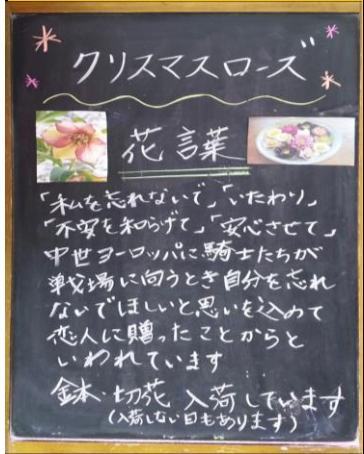 クリスマスローズ
花言葉
「私を忘れないで」「いたわり」
「不安を和らげて」「安心させて」
中世ヨーロッパに騎士たちが
戦場に向うとき自分を忘れ
ないでほしいと思いを込めて
恋人に贈ったことからと
いわれています
鉢・切花 入荷しています
(入荷しない日もあります)